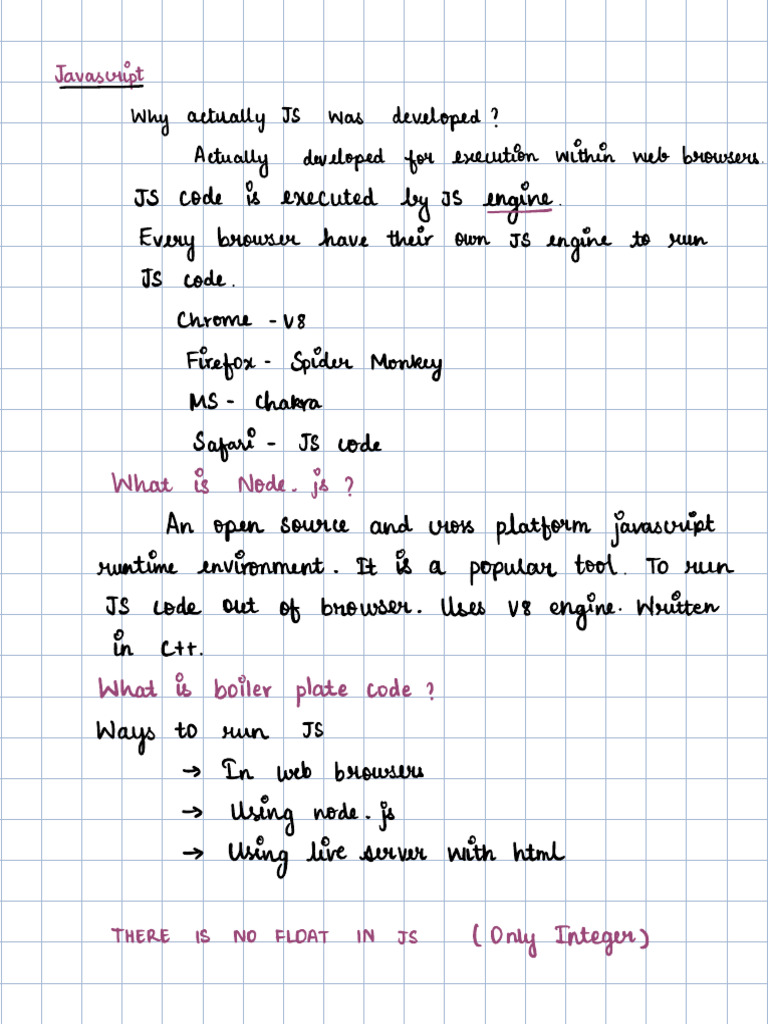 Javascript
Why actually JS was developed?
Actually developed for execution within web browsers.
JS code is executed by JS engine.
Every browser have their own JS engine to run
JS code.
Chrome - V8
Firefox - Spider Monkey
MS - Chakra
Safari - JS code
What is Node.js?
An open source and cross platform javascript
runtime environment. It is a popular tool. To run
JS code out of browser. Uses V8 engine. Written
in C++.
What is boiler plate code?
Ways to run JS
→ In web browsers
→ Using node.js
→ Using live server with html
THERE IS NO FLOAT IN JS (Only Integer)